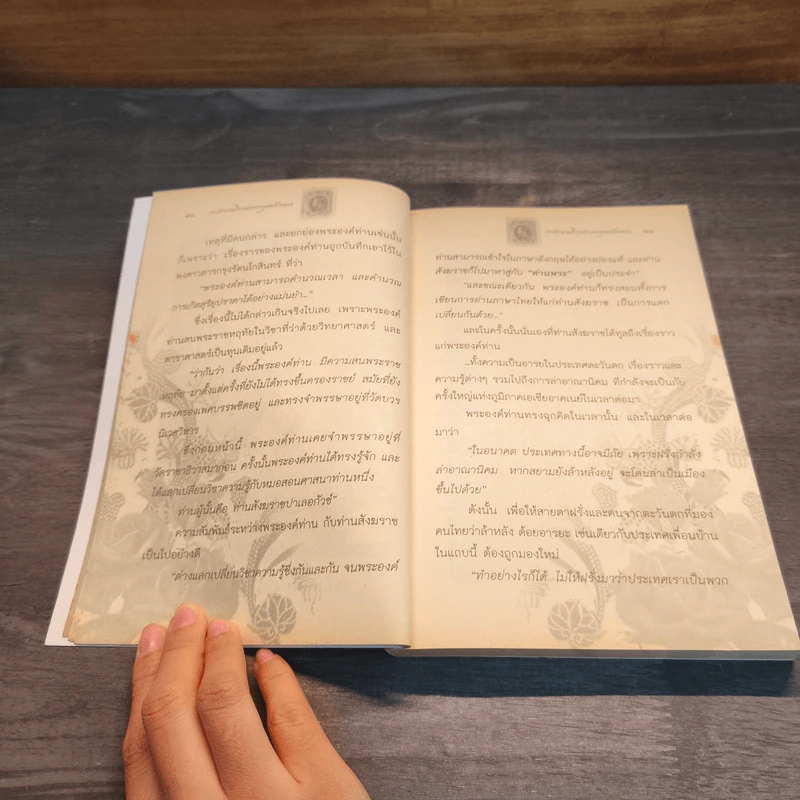 เหตุที่มีคนกล่าว และยกย่องพระองค์ท่านเช่นนั้น
ก็เพราะว่า เรื่องราวของพระองค์ท่านถูกบันทึกเอาไว้ใน
พงศาวดารกรุงรัตนโกสินทร์ ที่ว่า
"พระองค์ท่านสามารถคำนวณเวลา และคำนวณ
การเกิดสุริยุปราคาได้อย่างแม่นยำ..."
ซึ่งเรื่องนี้ไม่ได้กล่าวเกินจริงไปเลย เพราะพระองค์
ท่านสนพระราชหฤทัยในวิชาที่ว่าด้วยวิทยาศาสตร์ และ
ดาราศาสตร์เป็นทุนเดิมอยู่แล้ว
"ว่ากันว่า เรื่องนี้พระองค์ท่าน มีความสนพระราช
หฤทัย มาตั้งแต่ครั้งที่ยังไม่ได้ทรงขึ้นครองราชย์ สมัยที่ยัง
ทรงครองเพศบรรพชิตอยู่ และทรงจำพรรษาอยู่ที่วัดบวร
นิเวศวิหาร
ซึ่งก่อนหน้านี้ พระองค์ท่านเคยจำพรรษาอยู่ที่
วัดราชาธิวาสมาก่อน ครั้งนั้นพระองค์ท่านได้ทรงรู้จัก และ
ได้แลกเปลี่ยนวิชาความรู้กับหมอสอนศาสนาท่านหนึ่ง
ท่านผู้นั้นคือ ท่านสังฆราชปาเลอกัวซ์"
ความสัมพันธ์ระหว่างพระองค์ท่าน กับท่านสังฆราช
เป็นไปอย่างดี
"ต่างแลกเปลี่ยนวิชาความรู้ซึ่งกันและกัน จนพระองค์
ท่านสามารถเข้าใจในภาษาอังกฤษได้อย่างถ่องแท้ และท่าน
สังฆราชก็ไปมาหาสู่กับ "ท่านพระ" อยู่เป็นประจำ"
"และขณะเดียวกัน พระองค์ท่านก็ทรงสอนทั้งการ
เขียนการอ่านภาษาไทยให้แก่ท่านสังฆราช เป็นการแลก
เปลี่ยนกันด้วย..."
และในครั้งนั้นนั่นเองที่ท่านสังฆราชได้ทูลถึงเรื่องราว
แก่พระองค์ท่าน
...ทั้งความเป็นอารยในประเทศตะวันตก เรื่องราวและ
ความรู้ต่างๆ รวมไปถึงการล่าอาณานิคม ที่กำลังจะเป็นภัย
ครั้งใหญ่แห่งภูมิภาคเอเชียอาคเนย์ในเวลาต่อมา
พระองค์ท่านทรงฉุกคิดในเวลานั้น และในเวลาต่อ
มาว่า
"ในอนาคต ประเทศทางนี้อาจมีภัย เพราะฝรั่งกำลัง
ล่าอาณานิคม หากสยามยังล้าหลังอยู่ จะโดนล่าเป็นเมือง
ขึ้นไปด้วย"
ดังนั้น เพื่อให้สายตาฝรั่งและคนจากตะวันตกที่มอง
คนไทยว่าล้าหลัง ด้อยอารยะ เช่นเดียวกับประเทศเพื่อนบ้าน
ในแถบนี้ ต้องถูกมองใหม่
"ทำอย่างไรก็ได้ ไม่ให้ฝรั่งมาว่าประเทศเราเป็นพวก